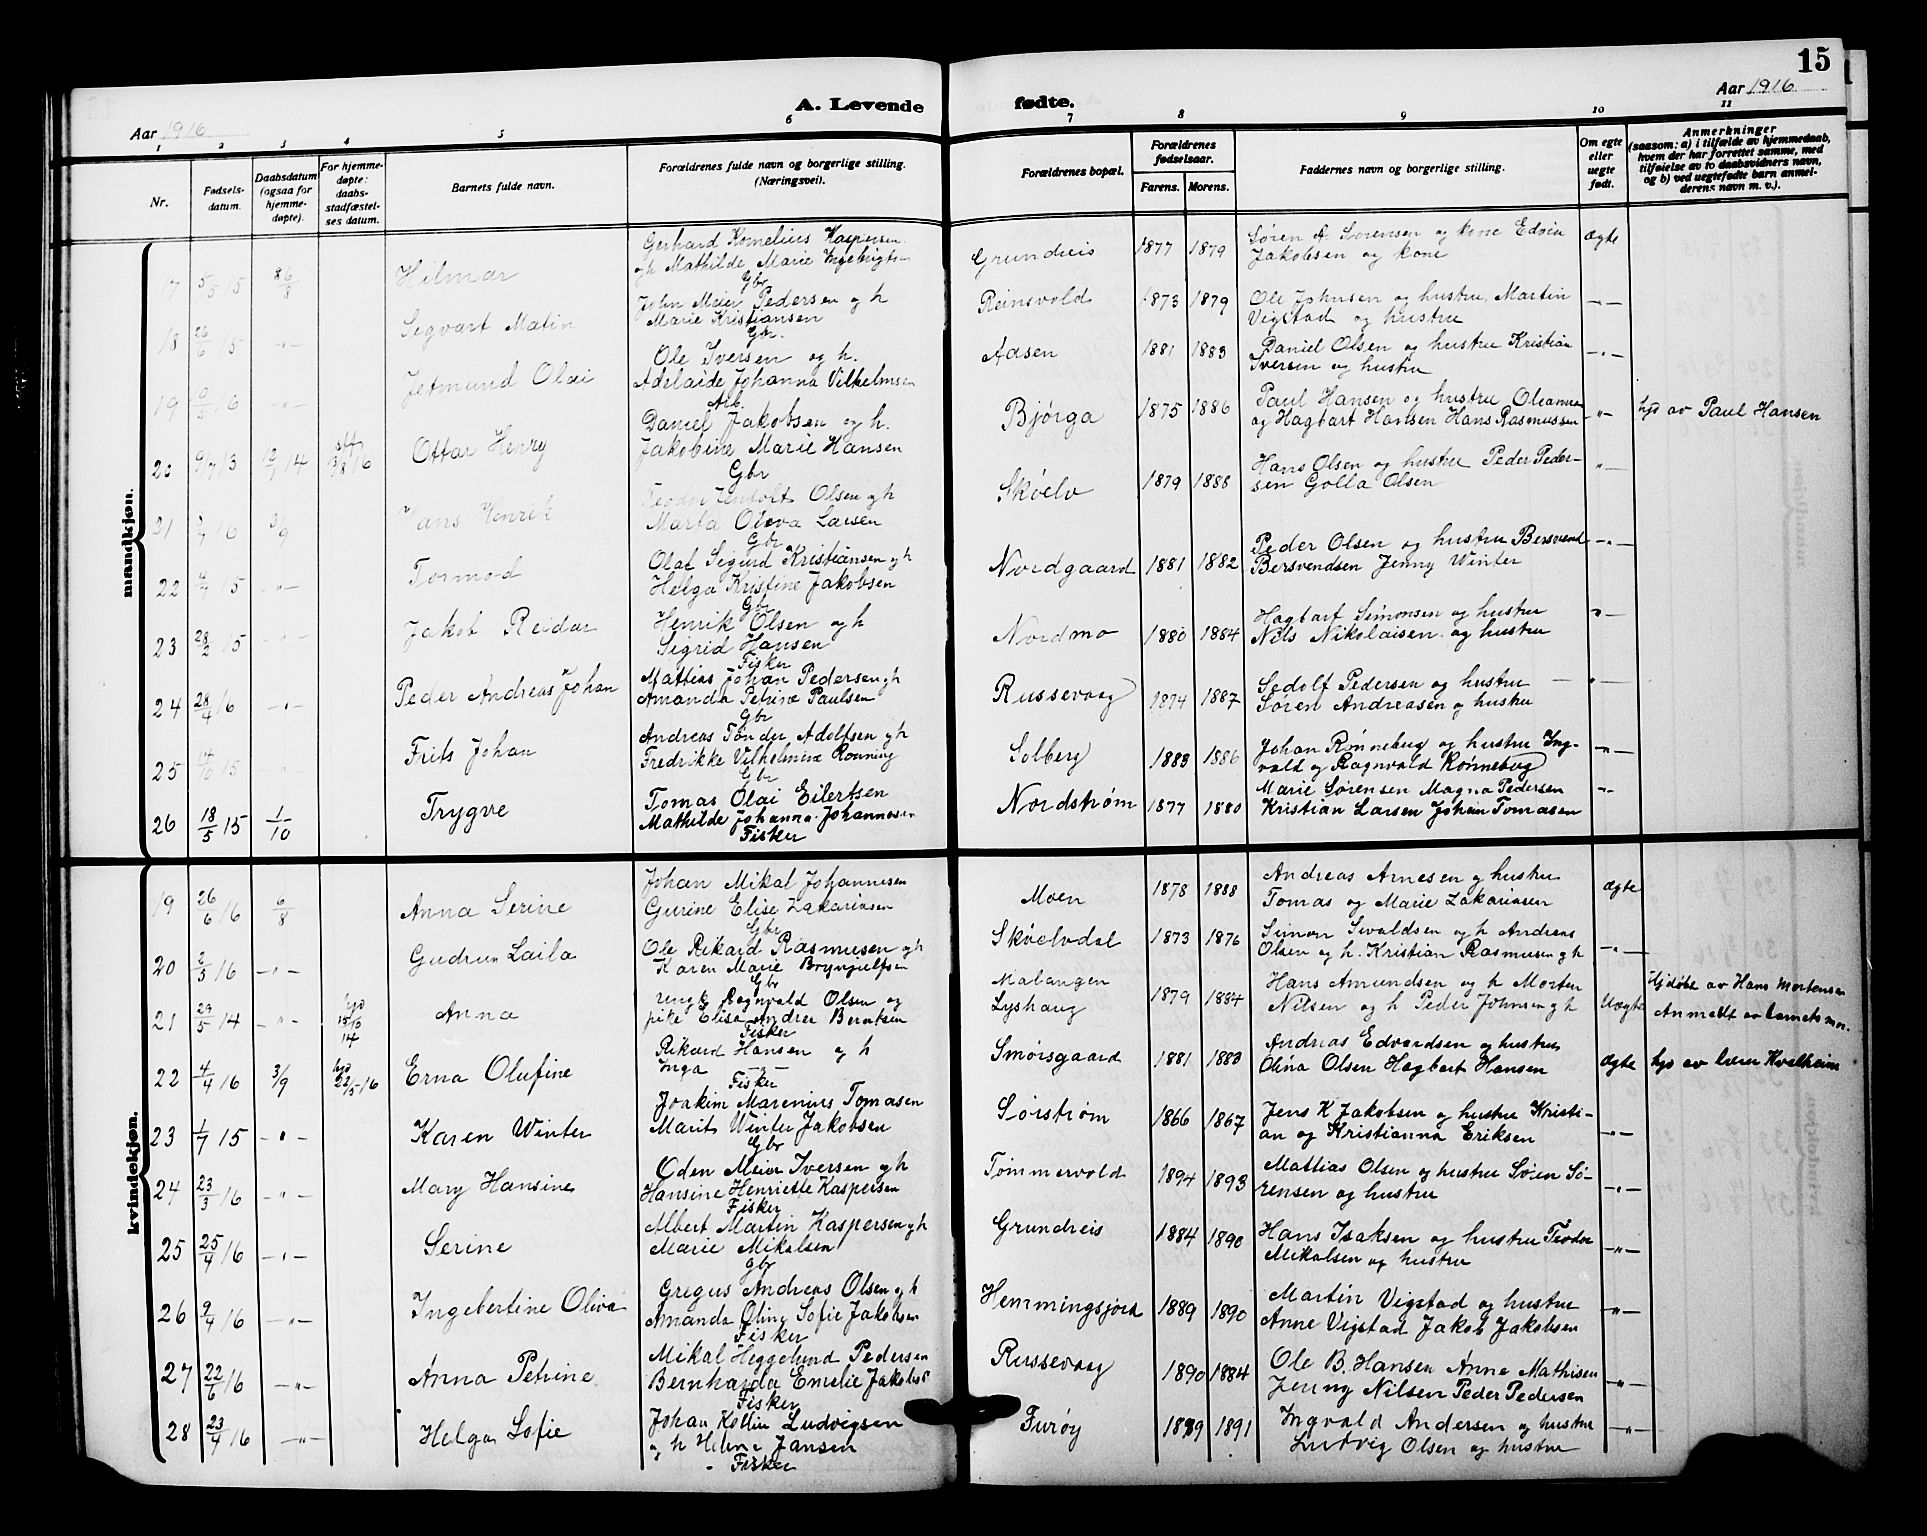 15
A. Levende fødte.
Aar 1916
Aar 1916
1 2 3 4 5 6 7 8 9 10 11
Nr.
Fødsels-
datum.
Daabsdatum
(ogsaa for
hjemme-
døpte).
For hjemme-
døpte:
daabs-
stadfæstel-
ses datum.
Barnets fulde navn.
Forældrenes fulde navn og borgerlige stilling.
(Næringsvei).
Forældrenes bopæl.
Forældrenes
fødselsaar.
Farens. Morens.
Faddernes navn og borgerlige stilling.
Om egte
eller
uegte
født.
Anmerkninger
(saasom: a) i tilfælde av hjemmedaab,
hvem der har forrettet samme, med
tilføielse av to daabsvidners navn,
og b) ved uegtefødte barn anmel-
derens navn m. v.).
mandkjøn.
17 5/5 15 6/8 Hilmar
Gerhard Kornelius Kaspersen
og h Mathilde Marie Ingebrigts-
Gbr
Grundreis 1877 1879
Søren A. Sørensen og kone Edvin
Jakobsen og kone
ægte
18 26/6 15 -"- Sigvart Matin
John Meier Pedersen og h
Marie Kristiansen
Gbr.
Reinsvold 1873 1879
Ole Johnsen og hustru, Martin
Vigstad og hustru
-"-
19 16 -"- Jetmund Olai
Ole Iversen og h.
Adelaide Johanna Vilhelmsen
Arb.
Aasen 1881 1883
Daniel Olsen og hustru Kristian
Iversen og hustru
-"-
20 13 14 16 Ottar Henry
Daniel Jakobsen og h.
Jakobine Marie Hansen
Gbr
Bjørga 1875 1886
Paul Hansen og hustru Oleanna
og Hagbart Hansen Hans Rasmussen
-"-
hjd av Paul Hansen
21 16 3/9 Hans Henrik
Olsen og h
Marta Oleva Larsen
Gbr
Skøelv 1879 1888
Hans Olsen og hustru Peder Peder-
sen Golla Olsen
-"-
22 15 -"- Tormod
Olaf Sigurd Kristiansen og h
Helga Kristine Jakobsen
Gbr
Nordgaard 1881 1882
Peder Olsen og hustru Bersvend
Bersvendsen Jenny Winter
-"-
23 28/2 15 -"- Jakob Reidar
Henrik Olsen og h
Sigrid Hansen
Fisker
Nordmo 1880 1884
Hagbart Simonsen og hustru
Nils Nikolaisen og hustru
-"-
24 28/4 16 -"- Peder Andreas Johan
Mattias Johan Pedersen og h
Amanda Petrine Paulsen
Gbr
Russevaag 1874 1887
Sedolf Pedersen og hustru
Søren Andreasen og hustru
-"-
25 4/10 15 -"- Frits Johan
Andreas Tønder Adolfsen og h
Fredrikke Vilhelmine Rønning
Gbr
Solberg 1883 1886
Johan Rønneberg og hustru Ing-
vald og Ragnvald Rønneberg
-"-
26 18/5 15 1/10 Trygve
Tomas Olai Eilertsen
Mathilde Johanna Johannesen
Fisker
Nordstrøm 1877 1880
Marie Sørensen Magna Pedersen
Kristian Larsen Johan Tomasen
-"-
kvindekjøn.
19 26/6 16 6/8 Anna Serine
Johan Mikal Johannesen
Gurine Elise Zakariasen
Gbr
Moen 1878 1888
Andreas Arnesen og hustru
Tomas og Marie Zakariasen
ægte
20 2/5 16 -"- Gudrun Laila
Ole Rikard Rasmusen og h
Karen Marie Bryngulfsen
Gbr
Skøelvdal 1873 1876
Simon Sivaldsen og h Andreas
Olsen og h. Kristian Rasmusen og h
-"-
21 29/5 14 -"- hjd 15/10 14 Anna
ungk Ragnvald Olsen og
pike Elise Andrea Berntsen
Fisker
Malangen
Lyshaug 1879 1884
Hans Amundsen og h Morten
Nilsen og h Peder Johnsen og h
Uægte
Hjdøbt av Hans Mortensen
Anmeldt av barnets mor.
22 4/4 16 3/9 hjd 22/5 16 Erna Olufine
Rikard Hansen og h
Inga -"-
Fisker
Smørsgaard 1881 1883
Andreas Edvardsen og hustru
Olina Olsen Hagbart Hansen
ægte
hjd av lærer Kvalheim
23 1/7 15 -"- Karen Winter
Joakim Marenius Tomasen
Marit Winter Jakobsen
Gbr
Sørstrøm 1866 1867
Jens K Jakobsen og hustru Kristi-
an og Kristianna Eriksen
-"-
24 23/3 16 -"- Mary Hansine
Oden Meier Iversen og h
Hansine Henriette Kaspersen
Fisker
Tømmervold 1894 1893
Mattias Olsen og hustru Søren Sø-
rensen og hustru
-"-
25 25/4 16 -"- Serine
Albert Martin Kaspersen og h
Marie Mikalsen
Gbr
Grundreis 1884 1890
Hans Isaksen og hustru Teodor
Mikalsen og hustru
-"-
26 9/4 16 -"- Ingebertine Oliva
Gregus Andreas Olsen og h
Amanda Oline Sofie Jakobsen
Fisker
Hemmingsjord 1889 1890
Martin Vigstad og hustru
Anne Vigstad Jakob Jakobsen
-"-
27 22/6 16 -"- Anna Petrine
Mikal Heggelund Pedersen
Bernharda Emelie Jakobs
Fisker
Russevaag 1890 1884
Ole B. Hansen Anne Mathisen
Jenny Nilsen Peder Pedersen
-"-
28 23/4 16 -"- Helga Sofie
Johan Kollin Ludvigsen
og h Helene Jansen
Fisker
Furøy 1889 1891
Ingvald Andersen og hustru
Ludvig Olsen og hustru
-"-